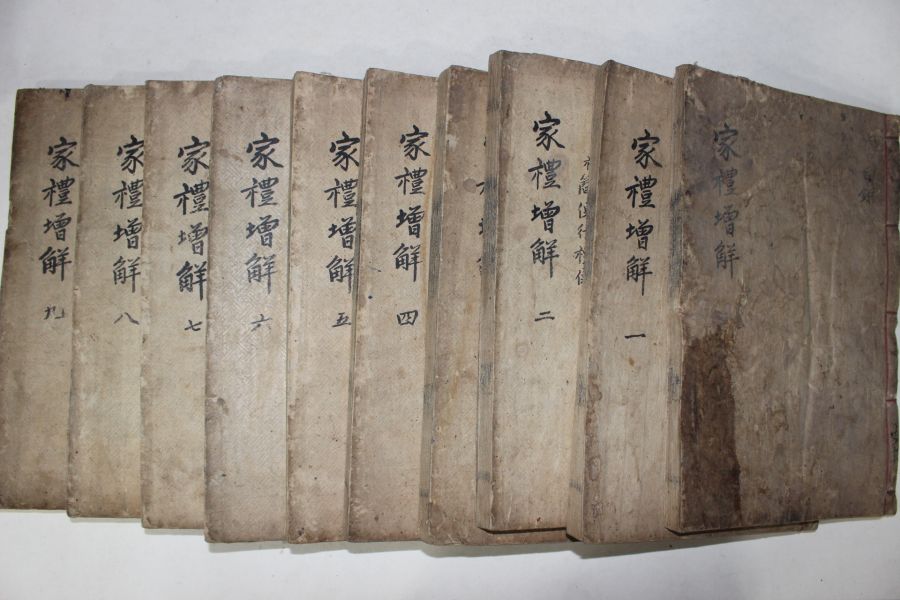 家禮增解
家禮增解
一
家禮增解
二
家禮增解
四
家禮增解
五
家禮增解
六
家禮增解
七
家禮增解
八
家禮增解
九